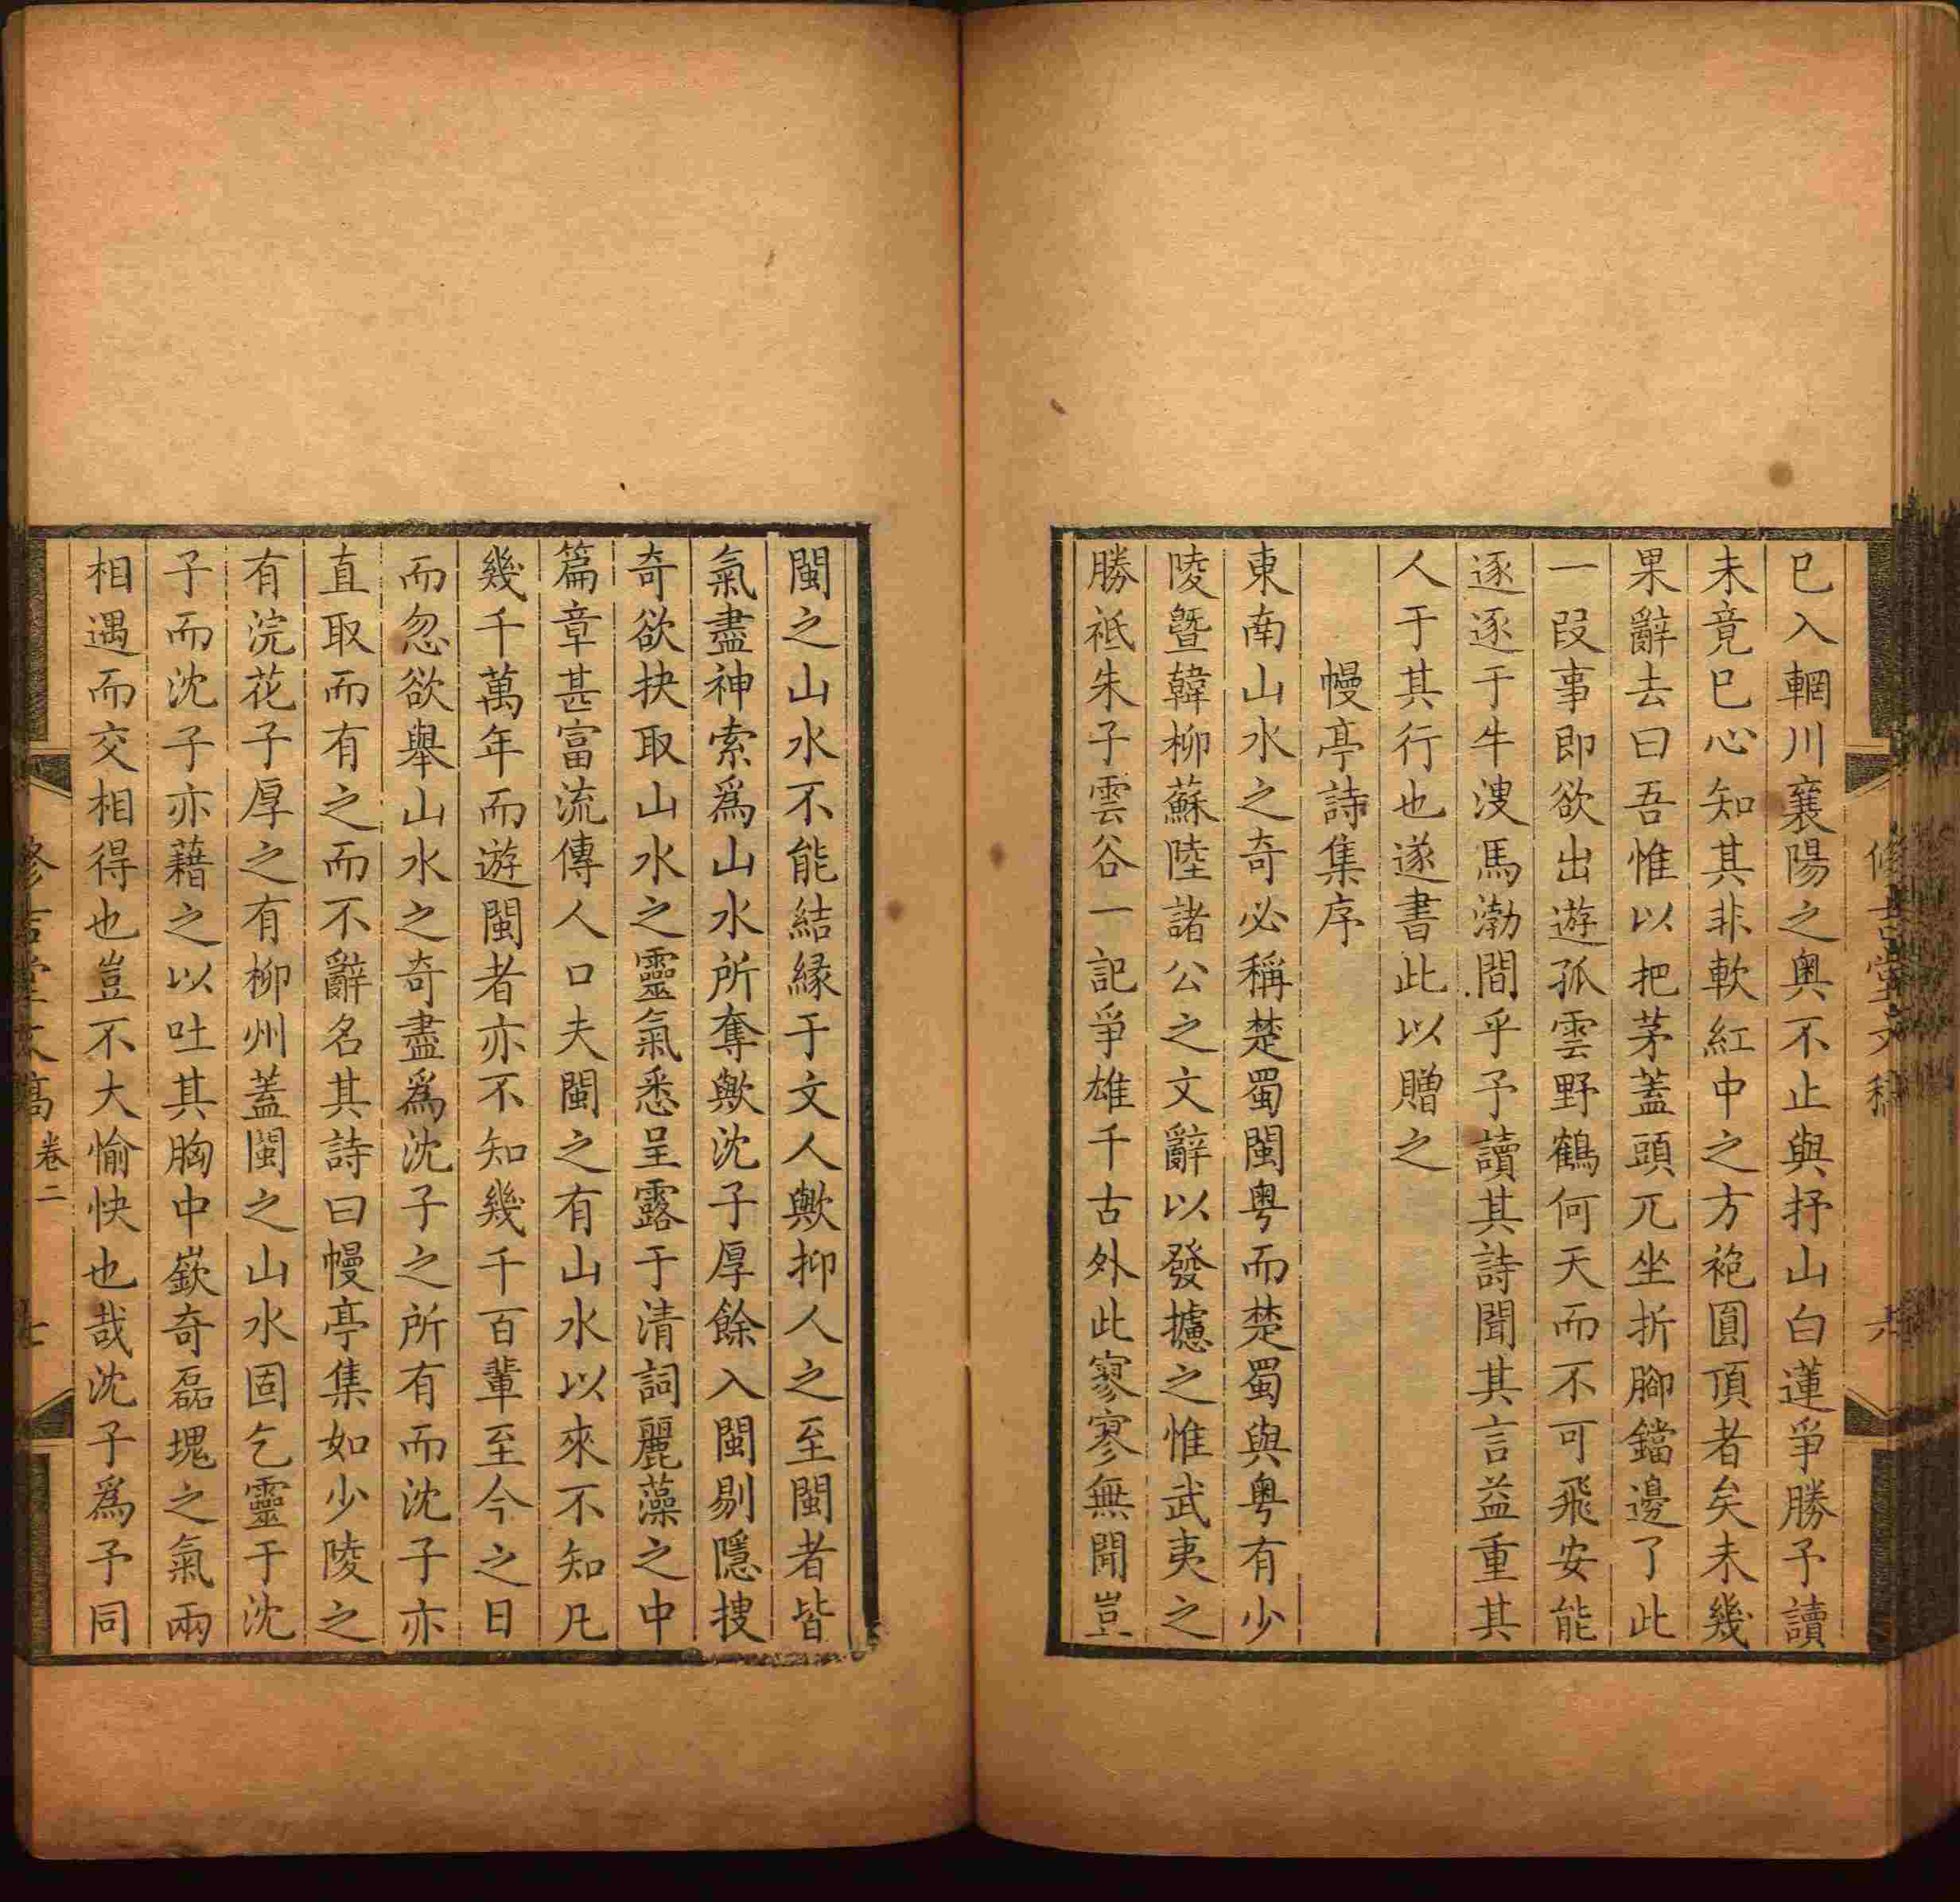 巳入輞川襄陽之奧不止與抒山白蓮爭勝予讀
未竟巳心知其非軟紅中之方袍圓頂者矣未幾
果辭去曰吾惟以把茅蓋頭兀坐折腳鐺邊了此
一段事即欲出遊孤雲野鶴何天而不可飛安能
逐逐于牛溲馬渤間乎予讀其詩聞其言益重其
人于其行也遂書此以贈之
幔亭詩集序
東南山水之奇必稱楚蜀閩粵而楚蜀與粵有少
陵暨韓柳蘇陸諸公之文辭以發攄之惟武夷之
勝祗朱子雲谷一記爭雄千古外此寥寥無聞豈
閩之山水不能結緣于文人歟抑人之至閩者皆
氣盡神索爲山水所奪歟沈子厚餘入閩剔隱搜
奇欲抉取山水之靈氣悉呈露于清詞麗藻之中
篇章甚富流傳人口夫閩之有山水以來不知凡
幾千萬年而遊閩者亦不知幾千百輩至今之日
而忽欲舉山水之奇盡爲沈子之所有而沈子亦
直取而有之而不辭名其詩曰幔亭集如少陵之
有浣花子厚之有柳州蓋閩之山水固乞靈于沈
子而沈子亦藉之以吐其胸中嶔奇磊塊之氣兩
相遇而交相得也豈不大愉快也哉沈子爲予同
卷二